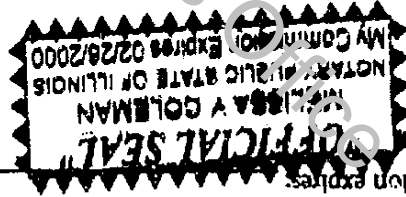 "OFFICIAL SEAL"
MELISSA Y COLEMAN
NOTARY PUBLIC STATE OF ILLINOIS
My Commission Expires 02/28/2000
Office
expires: